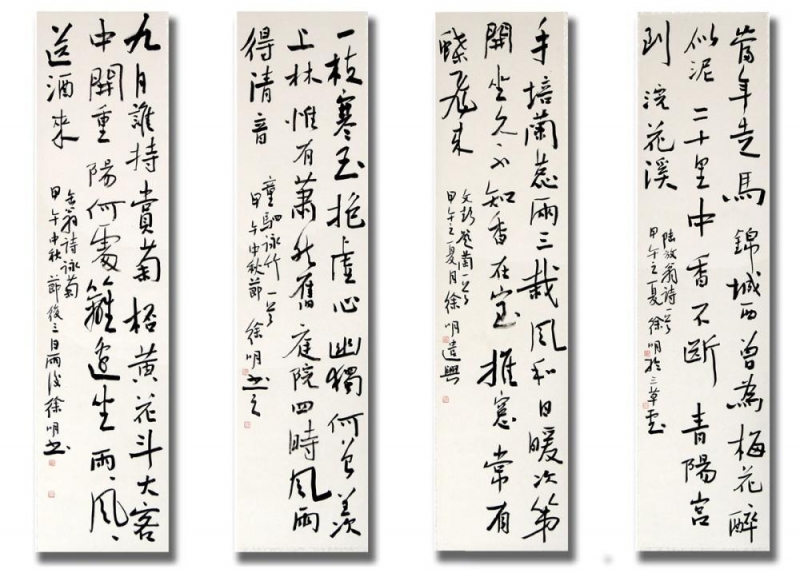 當年走馬錦城西曾為梅花醉
似泥二十里中香不斷青陽宮
到浣花溪
陸放翁詩一首
甲午之夏徐明於三草堂
手培蘭蕊兩三栽風和日暖次第
開坐久不知香在室推窗常有
蝶飛來
蘭一首
甲午之夏月徐明遣興
一枝寒玉抱虛心幽獨何曾羨
上林惟有蕭然舊庭院四時風雨
得清音
詠竹一首
甲午中秋節徐明書之
九月誰持賞菊杯黃花斗大客
中開重陽何處籬邊坐雨、風、
送酒來
缶翁詩詠菊
甲午中秋節後三日雨後徐明書